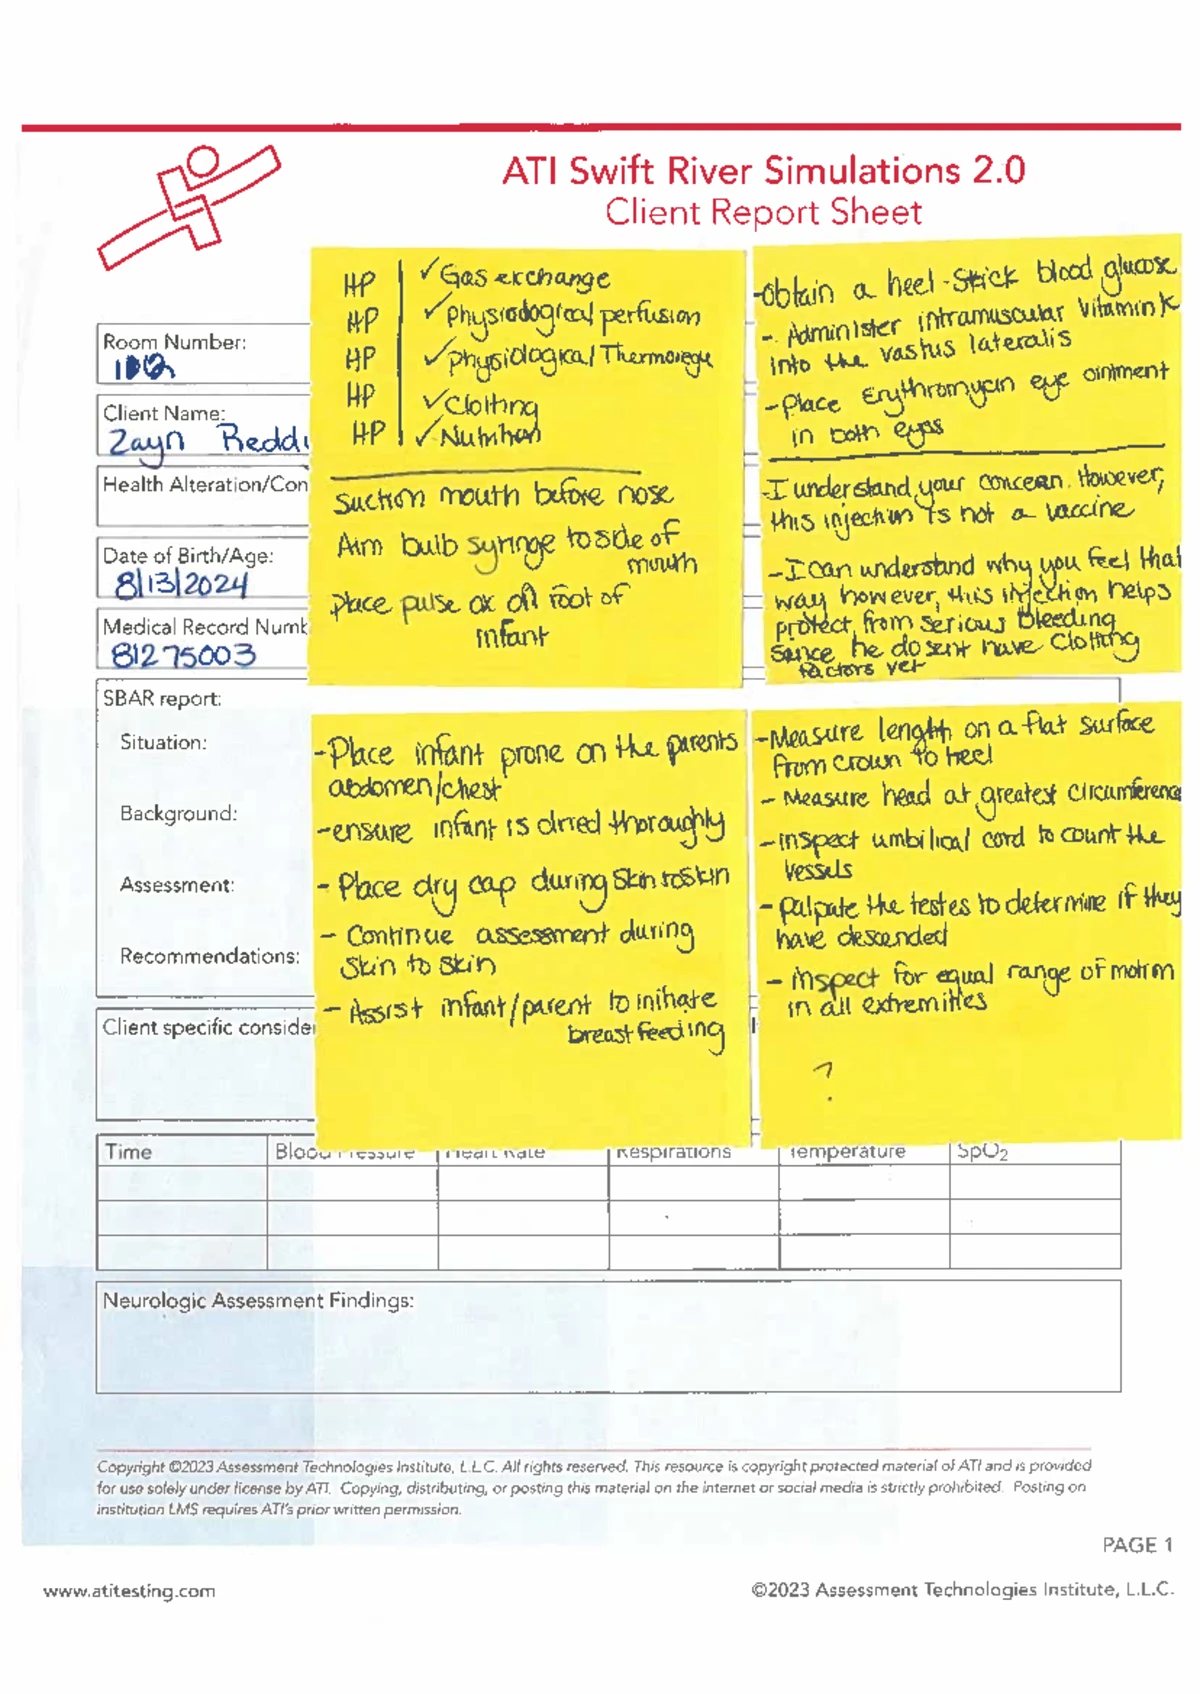 ATI Swift River Simulations 2.0
Client Report Sheet
Room Number:
Client Name:
Zayn Reddi
Health Alteration/Con
Date of Birth/Age:
8/13/2024
Medical Record Numb
81275003
HP ✓Gas exchange
HP ✓Physiological perfusion
HP ✓Physiological Thermoregu
HP ✓Clotting
HP ✓Nutrition
Suction mouth before nose
Aim bulb syringe to side of
mouth
Place pulse ox on foot of
infant
-Obtain a heel-stick blood glucose
- Administer intramuscular Vitamin K
into the vastus lateralis
-Place Erythromycin eye ointment
in both eyes
-I understand your concern. However,
this injection is not a vaccine
-I can understand why you feel that
way however, this injection helps
protect from serious bleeding
he dosent have Clotting
factors yet
SBAR report:
Situation:
Background:
Assessment:
Recommendations:
Client specific consider
-Place infant prone on the parents
abdomen/chest
-ensure infant is dried thoroughly
- Place dry cap during Skin to Skin
- Continue assessment during
Skin to Skin
- Assist infant/parent to initiate
breastfeeding
-Measure length on a flat surface
from crown to heel
- Measure head at greatest circumference
-inspect umbilical cord to count the
vessels
- palpate the testes to determine if they
have descended
- inspect for equal range of motion
in all extremities
?
Time Blood Pressure Heart Rate Respirations Temperature SpO2
Neurologic Assessment Findings:
Copyright ©2023 Assessment Technologies Institute, L.L.C. All rights reserved. This resource is copyright protected material of ATI and is provided
for use solely under license by ATI. Copying, distributing, or posting this material on the internet or social media is strictly prohibited. Posting on
institution LMS requires ATI's prior written permission.
PAGE 1
www.atitesting.com
©2023 Assessment Technologies Institute, L.L.C.